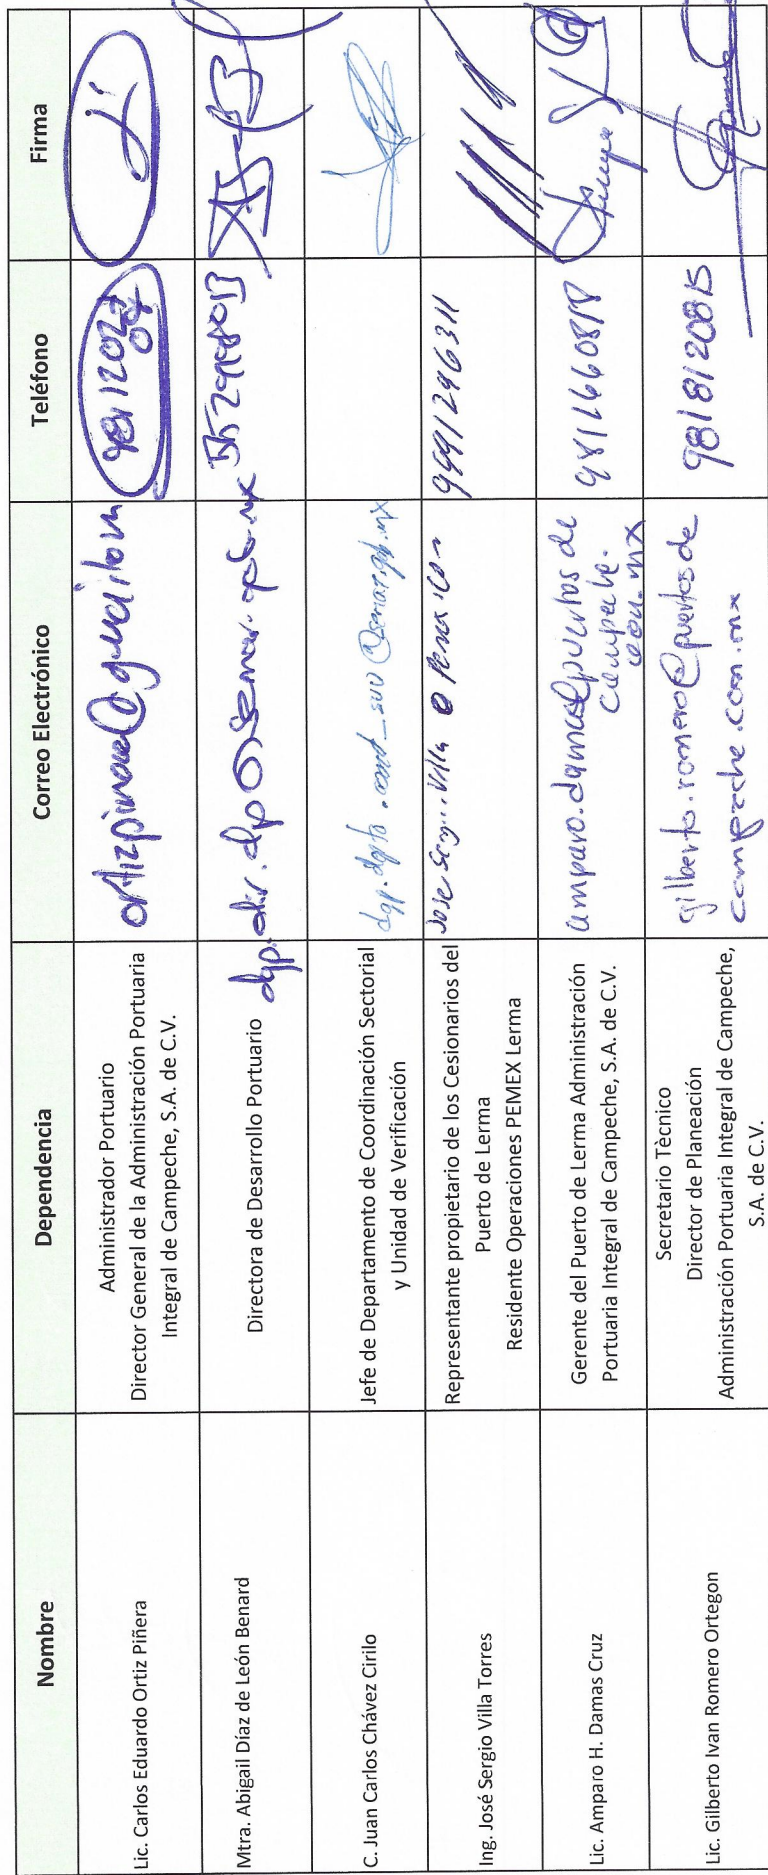 Nombre
Dependencia
Correo Electrónico
Teléfono
Firma
Lic. Carlos Eduardo Ortiz Piñera
Administrador Portuario
Director General de la Administración Portuaria
Integral de Campeche, S.A. de C.V.
Mtra. Abigail Díaz de León Benard
Directora de Desarrollo Portuario
dgp.dir.dp@semar.gob.mx
C. Juan Carlos Chávez Cirilo
Jefe de Departamento de Coordinación Sectorial
y Unidad de Verificación
Ing. José Sergio Villa Torres
Representante propietario de los Cesionarios del
Puerto de Lerma
Residente Operaciones PEMEX Lerma
9991246311
Lic. Amparo H. Damas Cruz
Gerente del Puerto de Lerma Administración
Portuaria Integral de Campeche, S.A. de C.V.
amparo.damas@puertos de
campeche.
com.mx
9811660818
Lic. Gilberto Ivan Romero Ortegon
Secretario Tècnico
Director de Planeación
Administración Portuaria Integral de Campeche,
S.A. de C.V.
gilberto.romero@puertos de
campeche.com.mx
9818120815